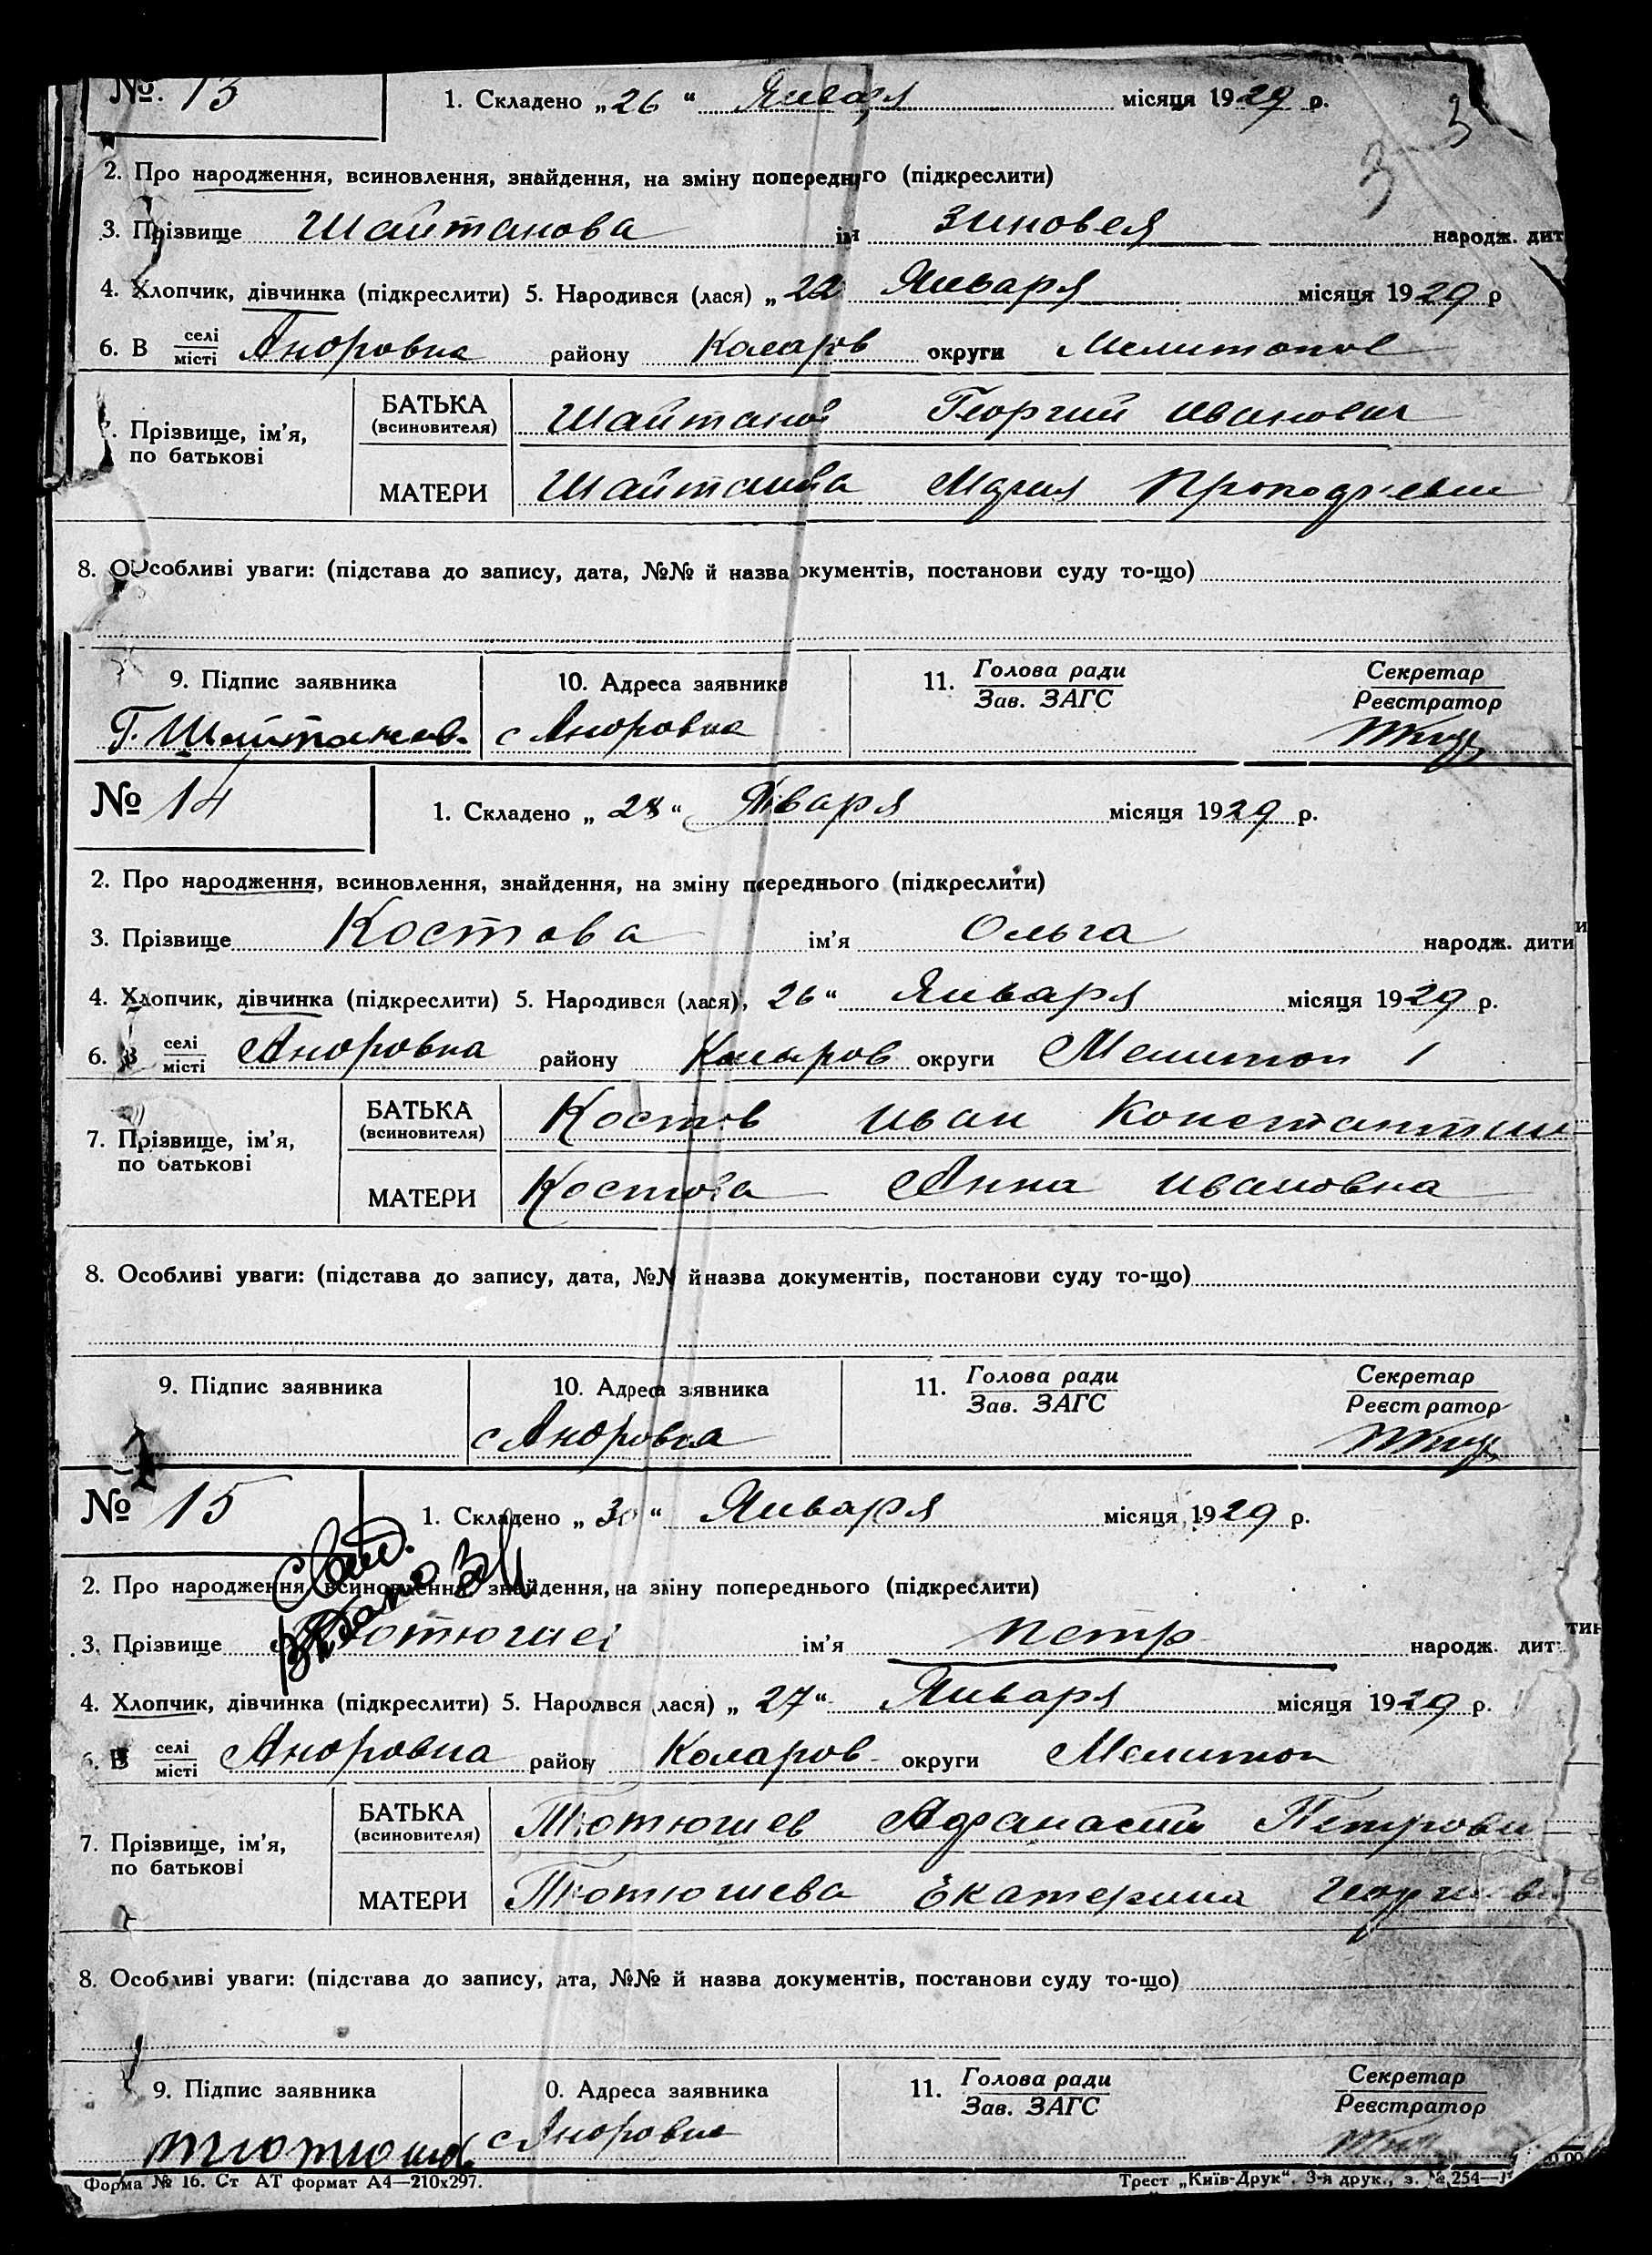 №. 13 1. Складено „26“ Января місяця 1929 р.
3 3
2. Про народження, всиновлення, знайдення, на зміну попереднього (підкреслити)
3. Прізвище Шайтанова ім Зиновея народж. дит
4. Хлопчик, дівчинка (підкреслити) 5. Народився (лася) „22 Января місяця 1929 р
6. В селі/місті Аноровка району Колоров округи Мелитопол
Прізвище, ім’я, по батькові БАТЬКА (всиновителя) Шайтанов Георгий Иванович
МАТЕРИ Шайтанова Мария
8. Особливі уваги: (підстава до запису, дата, №№ й назва документів, постанови суду то-що)
9. Підпис заявника 10. Адреса заявника 11. Голова ради/Зав. ЗАГС Секретар/Реєстратор
Г. Шайтанов. с Аноровка
№ 14 1. Складено „28“ Января місяця 1929 р.
2. Про народження, всиновлення, знайдення, на зміну попереднього (підкреслити)
3. Прізвище Костова ім’я Ольга народж. дити
4. Хлопчик, дівчинка (підкреслити) 5. Народився (лася), 26“ Января місяця 1929 р.
6. В селі/місті Аноровка району Коларов округи Мелитоп
7. Прізвище, ім’я, по батькові БАТЬКА (всиновителя) Костов Иван Константин
МАТЕРИ Костова Анна Ивановна
8. Особливі уваги: (підстава до запису, дата, №№ й назва документів, постанови суду то-що)
9. Підпис заявника 10. Адреса заявника 11. Голова ради/Зав. ЗАГС Секретар/Реєстратор
с Аноровка
№ 15 1. Складено „30“ Января місяця 1929 р.
2. Про народження, всиновлення, знайдення, на зміну попереднього (підкреслити)
3. Прізвище Тютюгиев ім’я Петр народж. дит
4. Хлопчик, дівчинка (підкреслити) 5. Народився (лася) „27“ Января місяця 1929 р.
6. В селі/місті Аноровка району Коларов округи Мелитоп
7. Прізвище, ім’я, по батькові БАТЬКА (всиновителя) Тютюгиев Афанасий Петрови
МАТЕРИ Тютюгиева Екатерина Георгиев
8. Особливі уваги: (підстава до запису, дата, №№ й назва документів, постанови суду то-що)
9. Підпис заявника 10. Адреса заявника 11. Голова ради/Зав. ЗАГС Секретар/Реєстратор
с Аноровка
Форма № 16. Ст АТ формат А4—210х297. Трест „Київ-Друк“. 3-я друк., з. № 254—